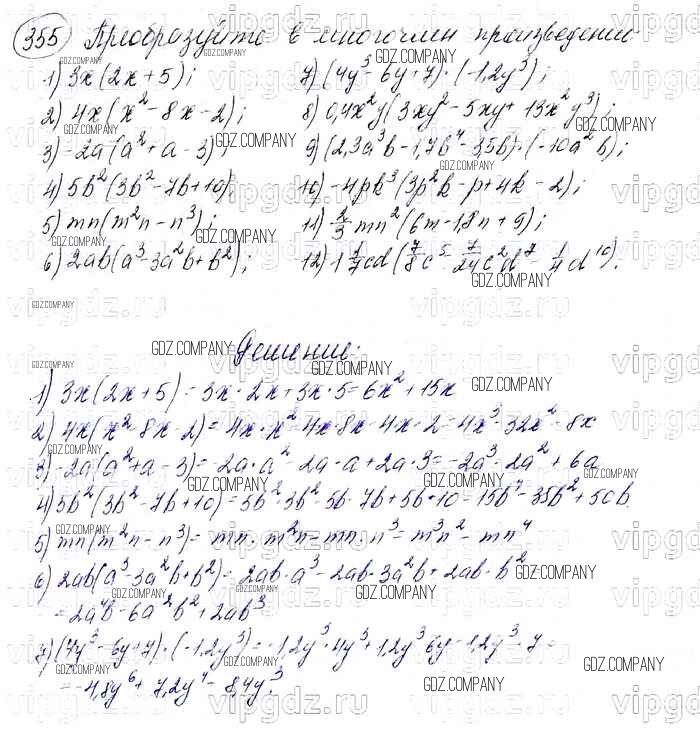 355 Преобразуйте в многочлен произведение
1) 3x(2x+5);
2) 4x(x²-8x-2);
3) -2a(a²+a-3);
4) 5b²(3b²-7b+10);
5) mn(m²n-n³);
6) 2ab(a³-3a²b+b²);
7) (4y³-6y+7)·(-1,2y³);
8) 0,4x²y(3xy²-5xy+13x²y³);
9) (2,3a³b-1,7b⁴-3,5b)·(-10a²b);
10) -4pk³(3p²k-p+4k-2);
11) 2/3mn²(6m-1,8n+9);
12) -1 1/7cd(7/8c⁵-7/24c²d⁷-1/4d¹⁰).
Решение:
1) 3x(2x+5)=3x·2x+3x·5=6x²+15x
2) 4x(x²-8x-2)=4x·x²-4x·8x-4x·2=4x³-32x²-8x
3) -2a(a²+a-3)=-2a·a²-2a·a+2a·3=-2a³-2a²+6a
4) 5b²(3b²-7b+10)=5b²·3b²-5b·7b+5b·10=15b⁴-35b²+50b.
5) mn(m²n-n³)=mn·m²n-mn·n³=m³n²-mn⁴
6) 2ab(a³-3a²b+b²)=2ab·a³-2ab·3a²b+2ab·b²=
=2a⁴b-6a³b²+2ab³
7) (4y³-6y+7)·(-1,2y³)=-1,2y³·4y³+1,2y³6y-1,2y³·7=
=-4,8y⁶+7,2y⁴-8,4y³.
GDZ.COMPANY
vipgdz.ru